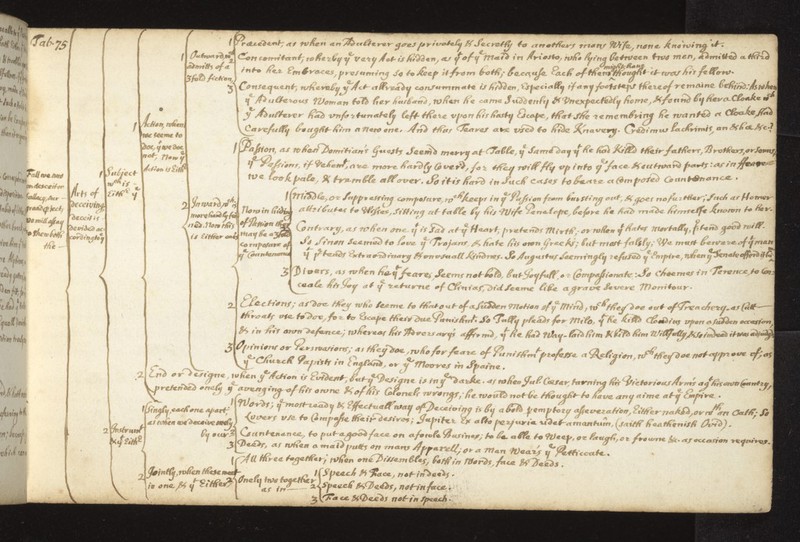 Tab. 75
Fall we now
the
Acts of
deceiving
deceit is
devided
accordingly
1 Subject
wch is
Eithr ye
1 Action, when
wee seeme to
doe, yt we doe
not; Now ye
Action is Eithr
1 Outward, wch
admits of a
3 fold fiction
1 Precedent, as when an Adulterer goes privately & Secretly to anothers mans Wife, none knowing it.
2 Concomitant, whereby ye very Act is hidden, as yt of ye maid in Ariosto, who lying between two men, admitted a third
into her Embraces, presuming so to keep it from both; because Each of them might have thought it was his fellow.
3 Consequent, whereby ye Act allready consummate is hidden, Especially if any footsteps thereof remaine behind: As when
ye Adulterous Woman told her husband, when he came Suddenly & Unexpectedly home, & found by her a Cloake wch
ye Adulterer had unfortunately left there upon his hasty Escape, that She remembring he wanted a Cloake had
carefully bought him a new one. And thus Teares are used to hide Knavery. Credimus lachrimis, an & hæ &c.
2 Inward, wch
more hardly
ned. Now this
is Either on
1 Passion, as when Domitians Guests Seemd merry at Table, ye Same day yt he had Killd their fathers, Brothers, or Sonns,
ye Passions, if Vehemt, are more hardly Coverd, for they will fly up into ye face & outward parts: as in feare
we look pale, & tremble all over. So it is hard in Such cases to beare a composed Countenance.
Now in hiding
of Passion
may be a 3 fold
composure of
ye Countenance
1 Middle, or Suppressing composure, wch keeps in ye Passion from bursting out, & goes no further; Such as Homer
attributes to Ulisses, Sitting at table by his Wife Penelope, before he had made himselfe Known to her.
2 Contrary, as when one yt is Sad at ye Heart, pretends Mirth; or when yt hates mortally, ptend good will.
So Sinon Seemed to love ye Trojans, & hate his own Greeks; but most falsly. We must beware of ye man
yt ptends Extraordinary & unusuall Kindness. So Augustus Seemingly refused ye Empire, when ye Senate offerd
3 Divers, as when he yt feares, Seems not bold, but Joyfull, or Compassionate: So Chremes in Terence, to Con-
ceale his Joy at ye returne of Clinias, did Seeme like a grave Severe Monitour.
2 Elections; as doe they who seeme to that out of a Sudden Motion of ye Mind, wch they doe out of Treachery, as Cutt-
throats use to doe, for to Escape their due Punishmt. So Tully pleads for Milo, yt he killd Clodius upon a sudden occasion,
& in his own defence; whereas his Adversarys affirmd, yt he had Way-laid him & killd him Willfully, & So indeed it was
3 Opinions or Perswasions; as they doe, who for feare of Punishmt professe a Religion, wch they doe not approve of; as
ye Church Papists in England, or ye Moores in Spaine.
2 End or designe, when ye Action is Evident, but ye Designe is in ye darke. as when Jul: Cæsar, turning his Victorious Arms agt his own Country,
pretended onely ye avenging of his owne & of his Colonels wrongs, he would not be thought to have any aime at ye Empire.
2 Instrumt
& yt Eithr
1 Singly, each one apart
as when we deceive onely
by our
1 Words; ye most ready & Effectuall way of Deceiving is by a bold pemptory asseveration, Either naked, or wth an Oath; So
Lovers use to Compasse their desires; Jupiter Ex alto perjuria ridet amantum. (Saith heathenish Ovid).
2 Countenance, to put a good face on a foule Busines; to be able to Weep, or laugh, or frowne &c. as occasion requires.
3 Deeds, as when a maid putts on mans Apparell; or a Man Wears ye Petticoate.
2 Jointly, when these meet
in one & yt Either
1 All three together; when one Dissembles, both in Words, face & Deeds.
2 Onely two together
as in
1 Speech & Face, not in deeds.
2 Speech & Deeds, not in face.
3 Face & Deeds not in Speech.